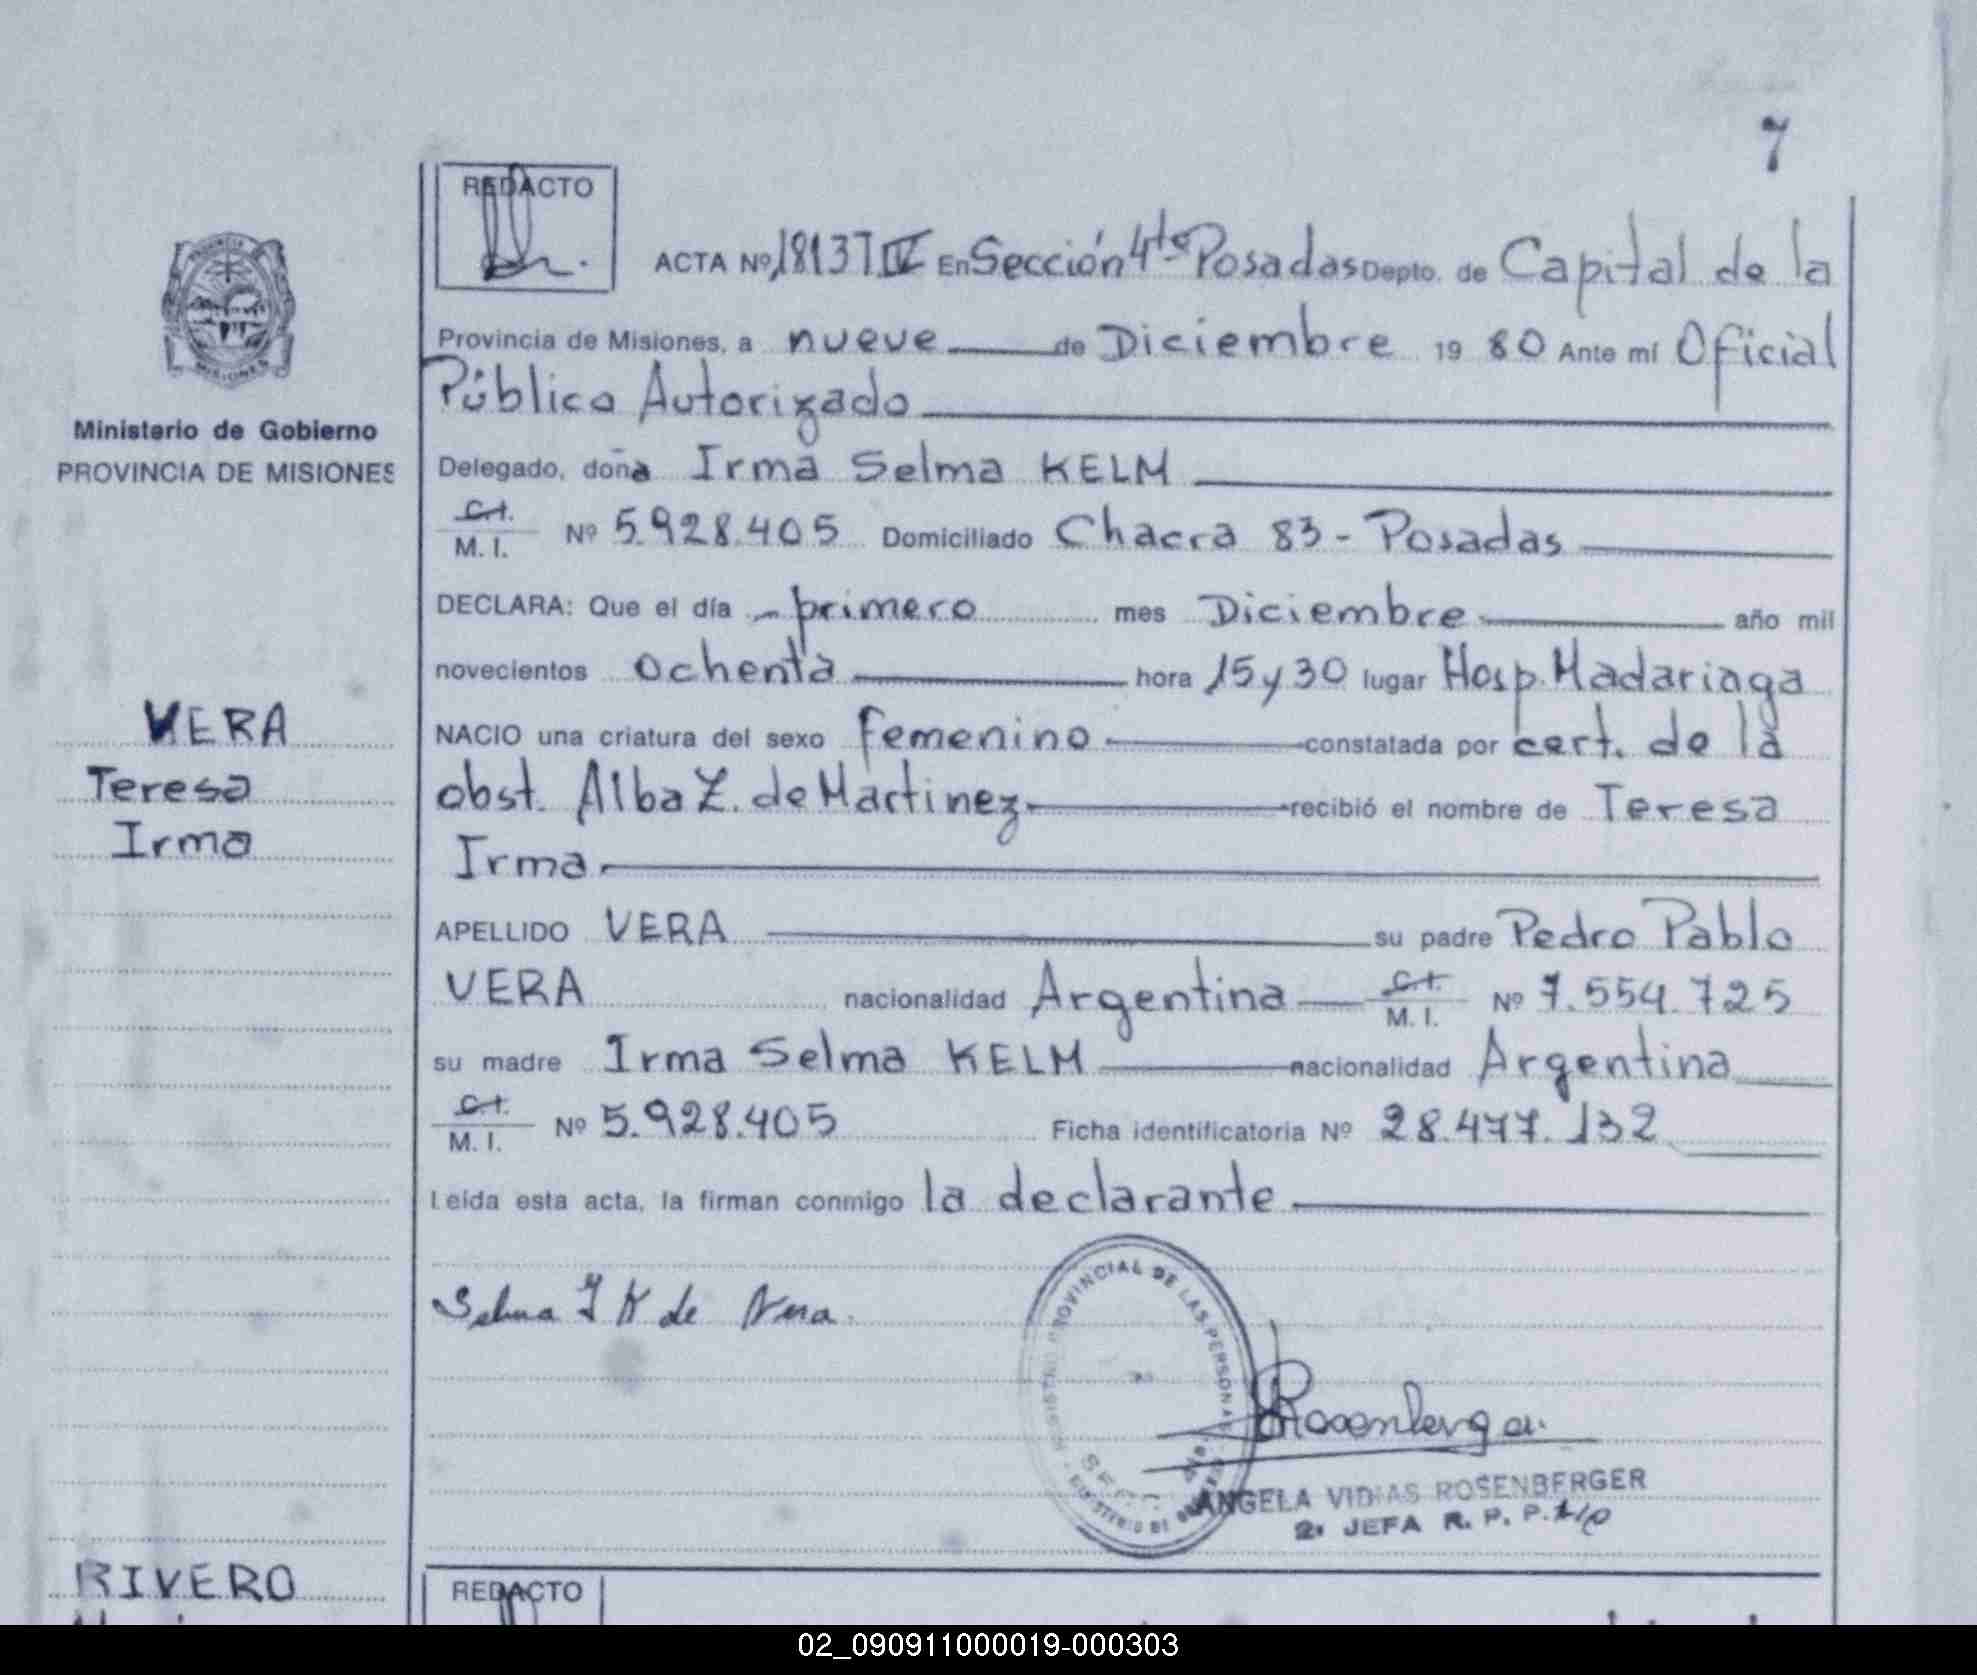 7
REDACTO
ACTA Nº 18137 IV En Sección 4ta Posadas Depto. de Capital de la
Provincia de Misiones, a nueve de Diciembre 19 80 Ante mí Oficial
Público Autorizado
Ministerio de Gobierno
PROVINCIA DE MISIONES
Delegado, doña Irma Selma KELM
C.I.
M. I. Nº 5.928.405 Domiciliado Chacra 83 - Posadas
DECLARA: Que el día primero mes Diciembre año mil
novecientos ochenta hora 15 y 30 lugar Hosp. Madariaga
VERA
Teresa
Irma
NACIO una criatura del sexo femenino constatada por cert. de la
obst. Alba Z. de Martinez recibió el nombre de Teresa
Irma
APELLIDO VERA su padre Pedro Pablo
VERA nacionalidad Argentina C.I. M. I. Nº 7.554.725
su madre Irma Selma KELM nacionalidad Argentina
C.I.
M. I. Nº 5.928.405 Ficha identificatoria Nº 28.477.132
Leída esta acta, la firman conmigo la declarante
Selma I K de Vera
PROVINCIAL DE LAS PERSONAS
MINISTERIO DE
Rosenberger
ANGELA VIDIAS ROSENBERGER
2ª JEFA R. P. P.
RIVERO
REDACTO
02_090911000019-000303